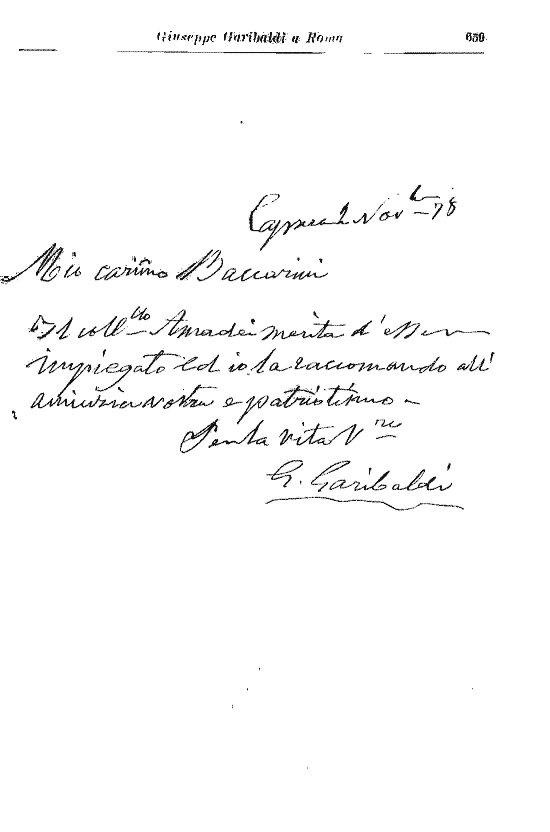 Giuseppe Garibaldi a Roma 659
Caprera 2 Nov.e 78
Mio carimo Baccarini
Il coll.llo Amadei merita d'esser
impiegato ed io lo raccomando all'
amicizia vostra e patriotismo -
Per la vita V.ro
G. Garibaldi